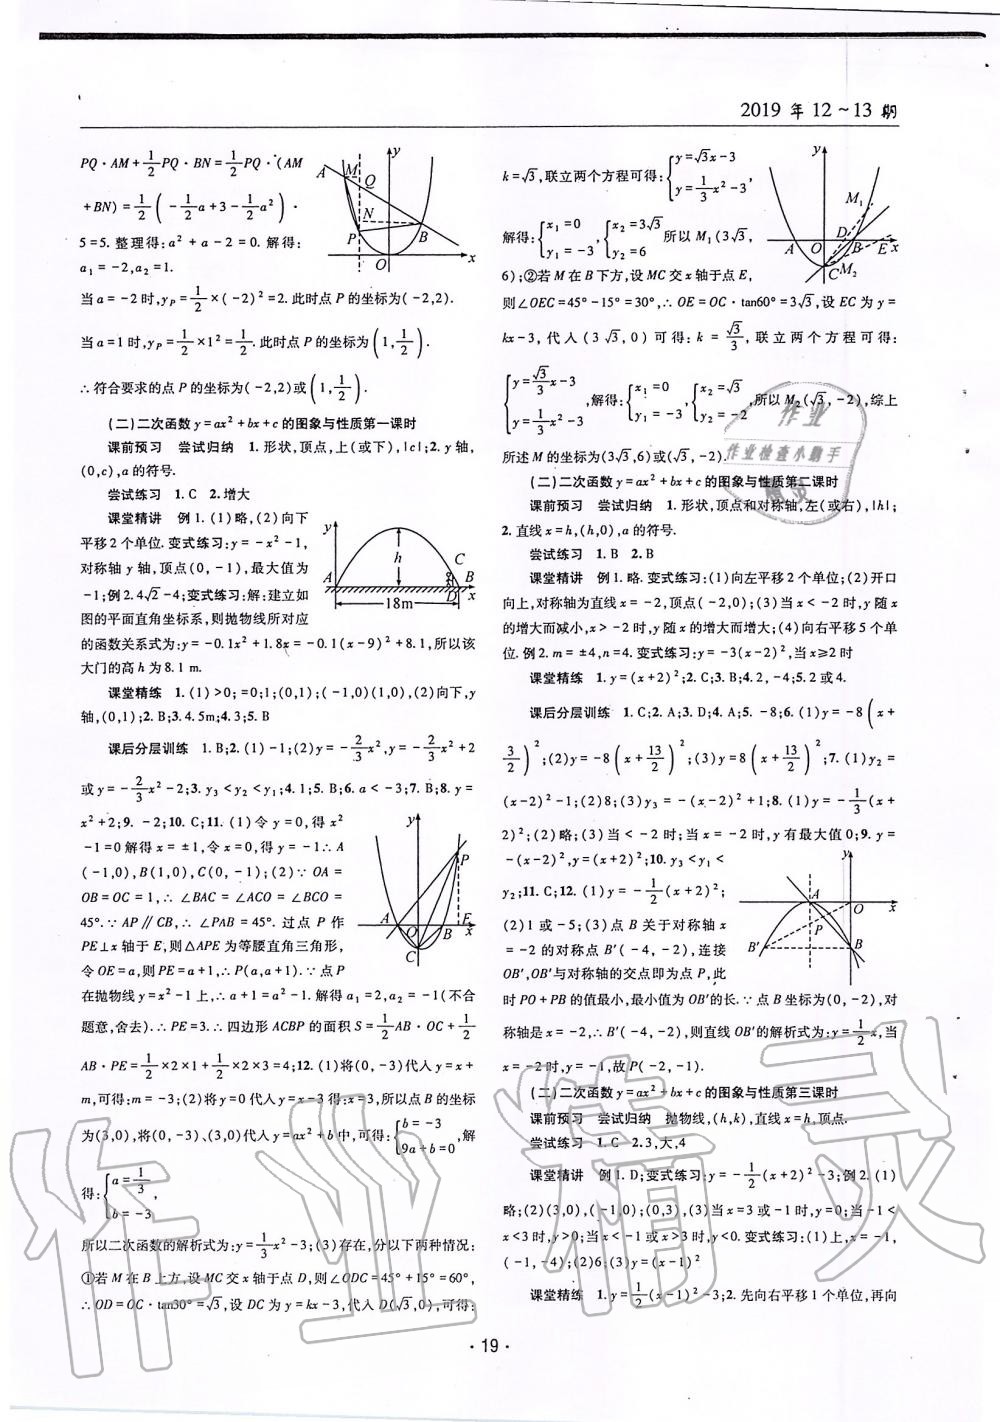 2019 年 12～13 期
PQ·AM+1/2PQ·BN=1/2PQ·(AM
+BN)=1/2(-1/2a+3-1/2a²)·
5=5. 整理得:a²+a-2=0. 解得:
a₁=-2,a₂=1.
当a=-2时,y_P=1/2×(-2)²=2.此时点P的坐标为(-2,2).
当a=1时,y_P=1/2×1²=1/2.此时点P的坐标为(1,1/2).
∴符合要求的点P的坐标为(-2,2)或(1,1/2).
(二)二次函数y=ax²+bx+c的图象与性质第一课时
课前预习 尝试归纳 1.形状,顶点,上(或下),|c|;2.y轴,
(0,c),a的符号.
尝试练习 1.C 2.增大
课堂精讲 例1.(1)略,(2)向下
平移2个单位.变式练习:y=-x²-1,
对称轴y轴,顶点(0,-1),最大值为
-1;例2.4√2-4;变式练习:解:建立如
图的平面直角坐标系,则抛物线所对应
的函数关系式为:y=-0.1x²+1.8x=-0.1(x-9)²+8.1,所以该
大门的高h为8.1 m.
课堂精练 1.(1)>0;=0;1;(0,1);(-1,0)(1,0),(2)向下,y
轴,(0,1);2.B;3.4.5m;4.3;5.B
课后分层训练 1.B;2.(1)-1;(2)y=-2/3x²,y=-2/3x²+2
或y=-2/3x²-2;3.y₃<y₂<y₁;4.1;5.B;6.a<-3;7.B;8.y=
x²+2;9.-2;10.C;11.(1)令y=0,得x²
-1=0解得x=±1,令x=0,得y=-1∴A
(-1,0),B(1,0),C(0,-1);(2)∵OA=
OB=OC=1,∴∠BAC=∠ACO=∠BCO=
45°.∵AP∥CB,∴∠PAB=45°.过点P作
PE⊥x轴于E,则△APE为等腰直角三角形,
令OE=a,则PE=a+1,∴P(a,a+1).∵点P
在抛物线y=x²-1上,∴a+1=a²-1.解得a₁=2,a₂=-1(不合
题意,舍去).∴PE=3.∴四边形ACBP的面积S=1/2AB·OC+1/2
AB·PE=1/2×2×1+1/2×2×3=4;12.(1)将(0,-3)代入y=x+
m,可得:m=-3;(2)将y=0代入y=x-3得:x=3,所以点B的坐标
为(3,0),将(0,-3)、(3,0)代入y=ax²+b中,可得:{b=-3 9a+b=0,解
得:{a=1/3, b=-3
所以二次函数的解析式为:y=1/3x²-3;(3)存在,分以下两种情况:
①若M在B上方,设MC交x轴于点D,则∠ODC=45°+15°=60°,
∴OD=OC·tan30°=√3,设DC为y=kx-3,代入D(√3,0),可得:
y A M Q N P B O x
y h C A B D x 18m
y P A O B E x C
k=√3,联立两个方程可得:{y=√3x-3 y=1/3x²-3,
解得:{x₁=0 y₁=-3,{x₂=3√3 y₂=6 所以M₁(3√3,
6);②若M在B下方,设MC交x轴于点E,
则∠OEC=45°-15°=30°,∴OE=OC·tan60°=3√3,设EC为y=
kx-3,代入(3√3,0)可得:k=√3/3,联立两个方程可得:
{y=√3/3x-3 y=1/3x²-3,解得:{x₁=0 y₁=-3,{x₂=√3 y₂=-2,所以M₂(√3,-2),综上
所述M的坐标为(3√3,6)或(√3,-2).
(二)二次函数y=ax²+bx+c的图象与性质第二课时
课前预习 尝试归纳 1.形状,顶点和对称轴,左(或右),|h|;
2.直线x=h,(h,0),a的符号.
尝试练习 1.B 2.B
课堂精讲 例1.略.变式练习:(1)向左平移2个单位;(2)开口
向上,对称轴为直线x=-2,顶点(-2,0);(3)当x<-2时,y随x
的增大而减小,x>-2时,y随x的增大而增大;(4)向右平移5个单
位.例2.m=±4,n=4.变式练习:y=-3(x-2)²,当x≥2时
课堂精练 1.y=(x+2)²;2.C;3.B;4.2,-4;5.2或4.
课后分层训练 1.C;2.A;3.D;4.A;5.-8;6.(1)y=-8(x+
3/2)²;(2)y=-8(x+13/2)²;(3)y=8(x+13/2)²;7.(1)y₂=
(x-2)²-1;(2)8;(3)y₃=-(x-2)²+1;8.(1)y=-1/3(x+
2)²;(2)略;(3)当<-2时;当x=-2时,y有最大值0;9.y=
-(x-2)²,y=(x+2)²;10.y₃<y₁<
y₂;11.C;12.(1)y=-1/2(x+2)²;
(2)1或-5;(3)点B关于对称轴x
=-2的对称点B′(-4,-2),连接
OB′,OB′与对称轴的交点即为点P,此
时PO+PB的值最小,最小值为OB′的长.∵点B坐标为(0,-2),对
称轴是x=-2,∴B′(-4,-2),则直线OB′的解析式为:y=1/2x,当
x=-2时,y=-1,故P(-2,-1).
(二)二次函数y=ax²+bx+c的图象与性质第三课时
课前预习 尝试归纳 抛物线,(h,k),直线x=h,顶点.
尝试练习 1.C 2.3,大,4
课堂精讲 例1.D;变式练习:y=-1/2(x+2)²-3;例2.(1)
略;(2)(3,0),(-1,0);(0,3),(3)当x=3或-1时,y=0;当-1<
x<3时,y>0;当x<-1或x>3时,y<0.变式练习:(1)上,x=-1,
(-1,-4);(2)6;(3)y=(x-1)²
课堂精练 1.y=1/2(x-1)²-3;2.先向右平移1个单位,再向
y M₁ A O D B E x C M₂
y A O x P B′ B
作业
作业检查小助手
作业精灵
·19·